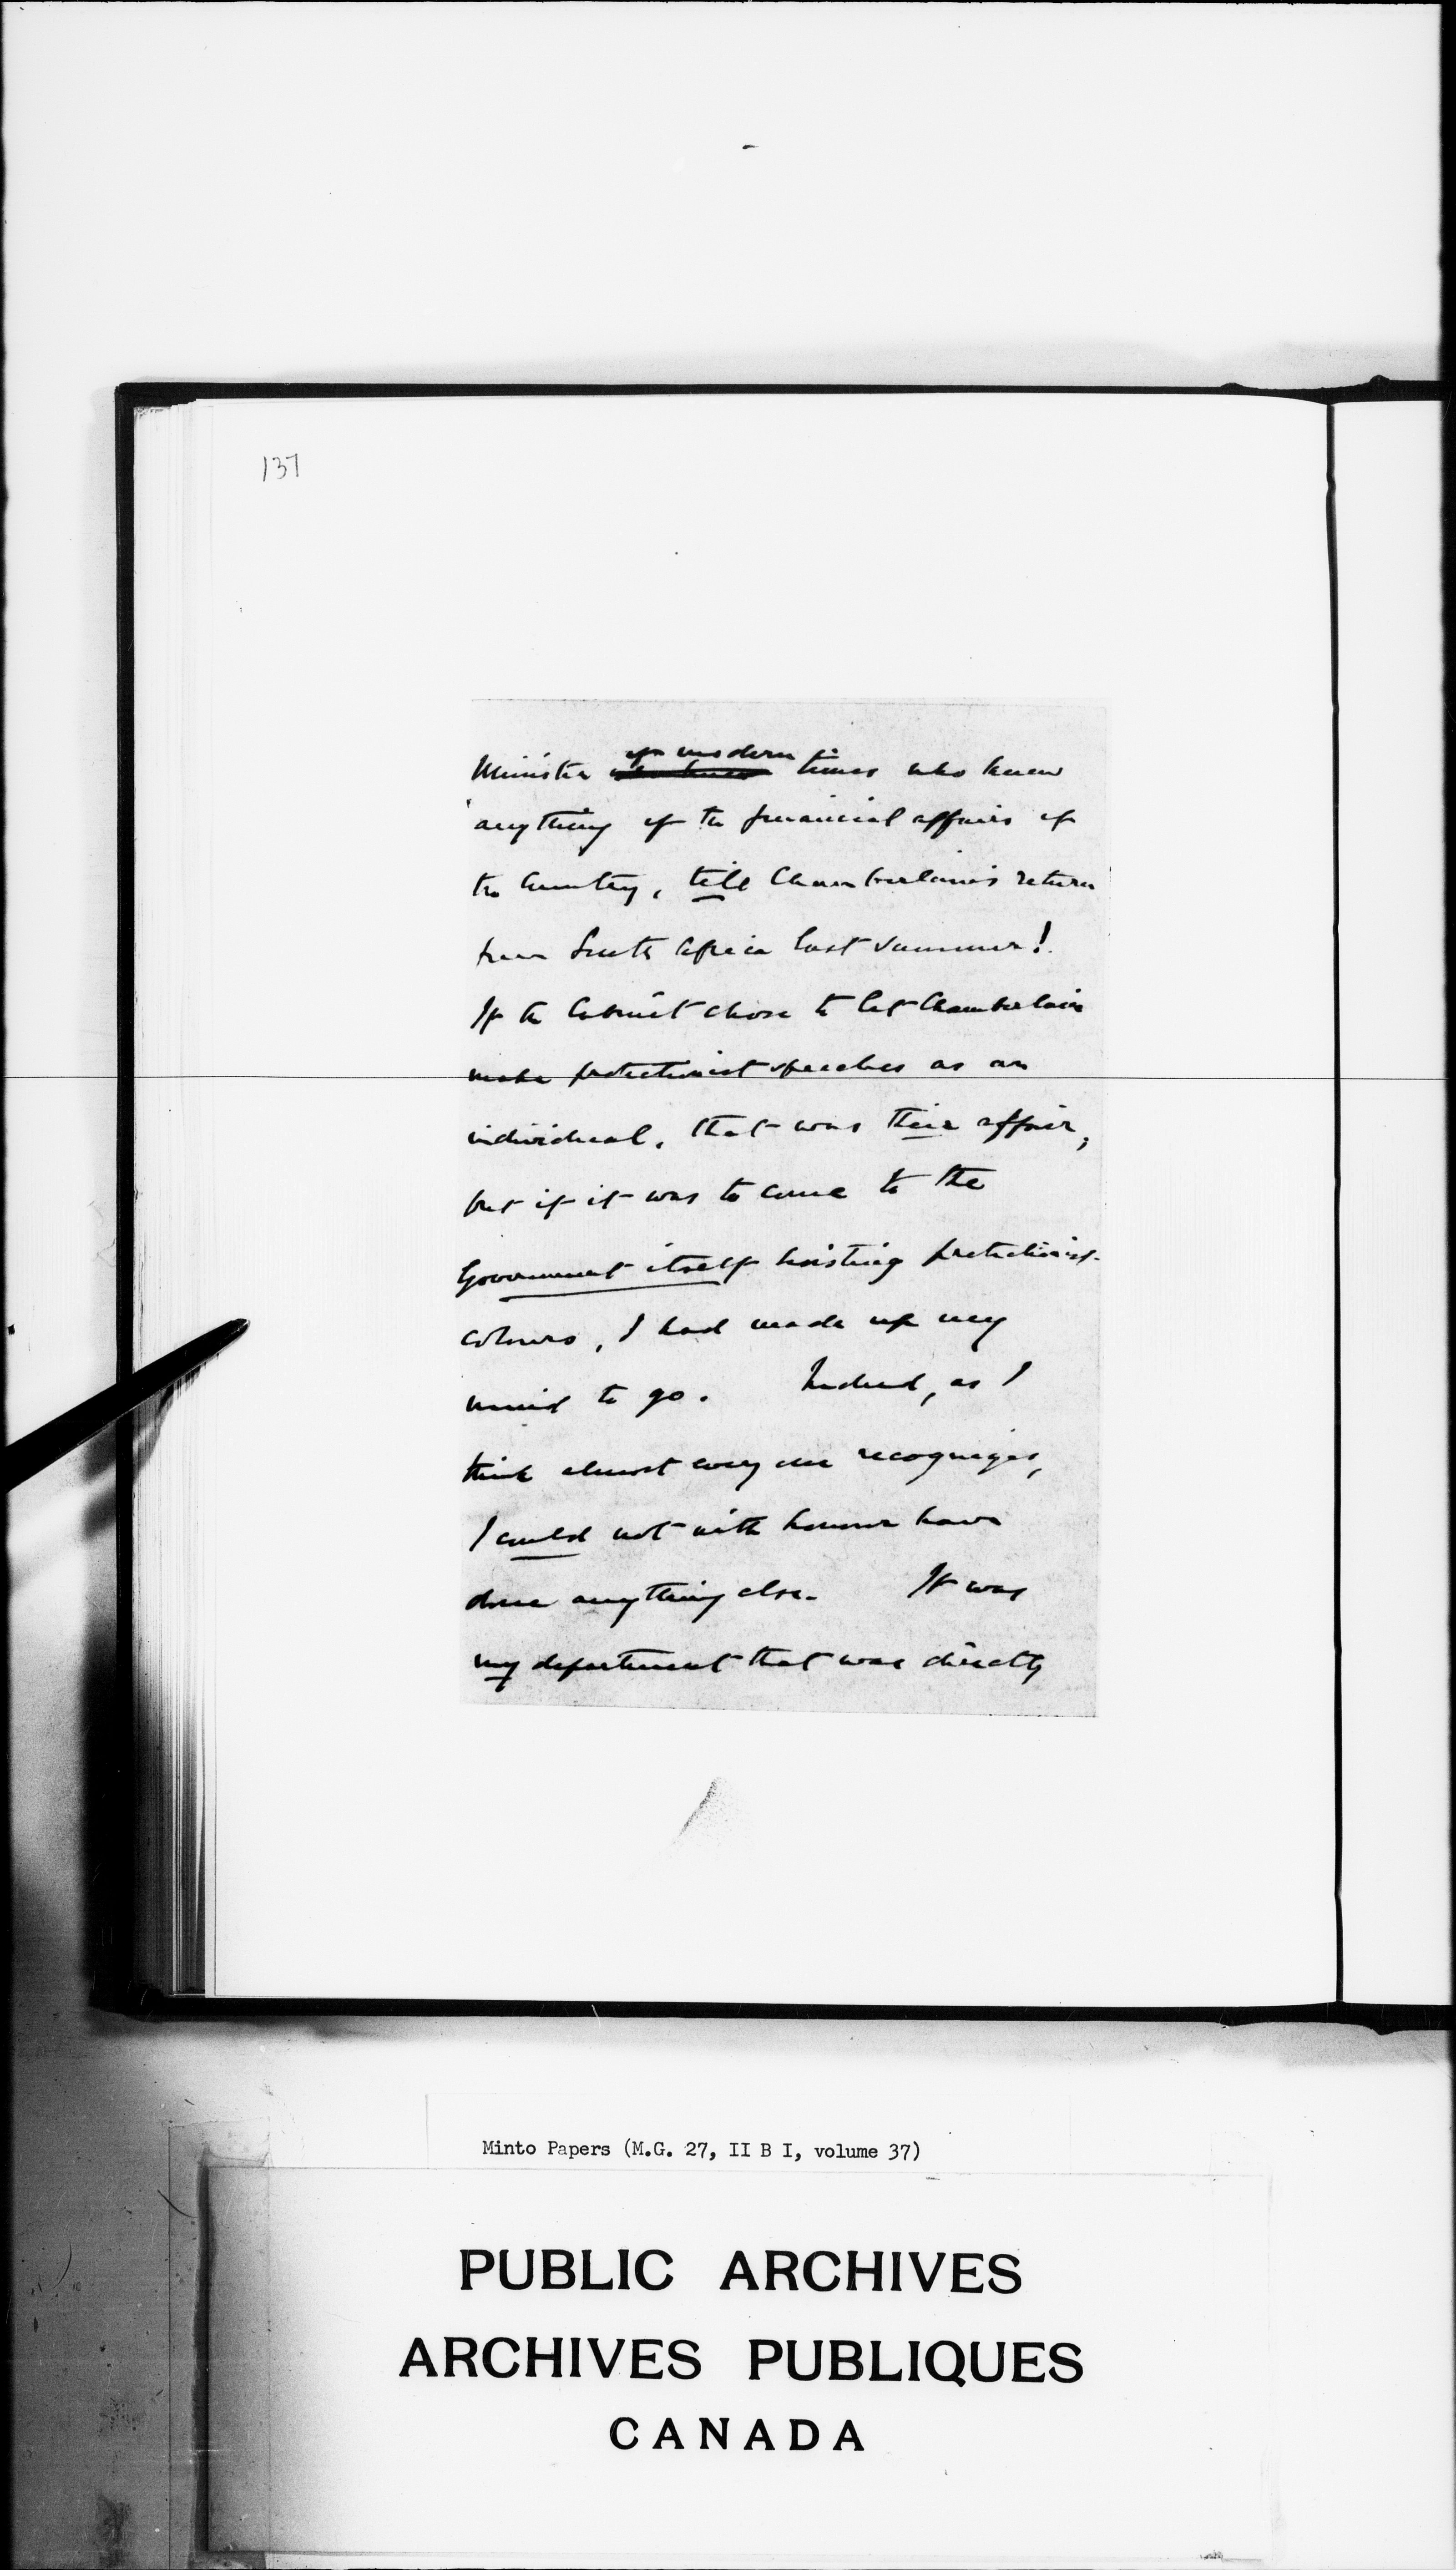 137
Minister of modern times who knew
anything of the financial affairs of
the Country, till Chamberlain's return
from South Africa last summer!
If the Cabinet chose to let Chamberlain
make protectionist speeches as an
individual, that was their affair,
but if it was to come to the
Government itself hoisting protectionist
colours, I had made up my
mind to go. Indeed, as I
think almost every one recognizes,
I could not with honour have
done anything else. It was
my department that was directly
Minto Papers (M.G. 27, II B I, volume 37)
PUBLIC ARCHIVES
ARCHIVES PUBLIQUES
CANADA